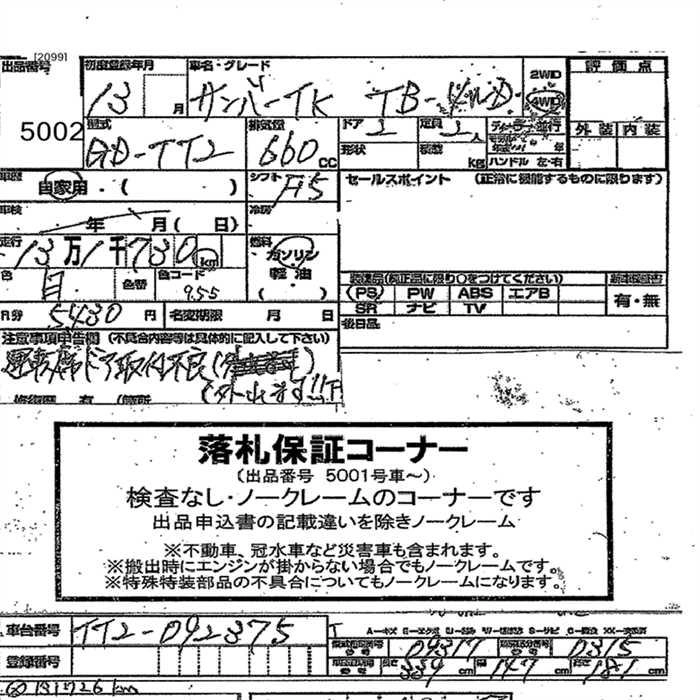 [2099]
出品番号 初度登録年月 車名・グレード 2WD 評価点
5002 13 月 サンバーTK TB-4WD 4WD
型式 排気量 ドア 定員 ディーラー 並行 外装 内装
GD-TT2 660 CC 形状 積載 kg ハンドル 左・右
車歴 自家用・( ) シフト F5 セールスポイント (正常に機能するものに限ります)
車検 年 月( 日) 冷房
走行 13万1千730 km 燃料 ガソリン
軽油
色 白 色替 色コード 955 ( ) 装備品(純正品に限り○をつけてください) 新車保証書
(PS) PW ABS エアB 有・無
R分 5430 円 名変期限 月 日 SR ナビ TV
注意事項申告欄 (不具合内容等は具体的に記入して下さい) 後日品
運転席ドア取付不良
修復歴 有 (箇所
落札保証コーナー
(出品番号 5001号車~)
検査なし・ノークレームのコーナーです
出品申込書の記載違いを除きノークレーム
※不動車、冠水車など災害車も含まれます。
※搬出時にエンジンが掛からない場合でもノークレームです。
※特殊特装部品の不具合についてもノークレームになります。
車台番号 TT2-092375
登録番号 04317 0315
長さ 339 cm 幅 147 cm 高さ 181 cm
131726 km